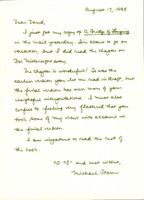 August 17, 1998
Dear David,
I just got my copy of A Bridge of Longing
in the mail yesterday. I'm about to go on
vacation, but I did read the chapter on
Der Nister right away.
The chapter is wonderful! So was the
earlier version you let me read in draft, but
the final version has even more of your
insightful interpretations. I must also
confess to feeling very flattered that you
took some of my views into account in
the final version.
I am impatient to read the rest of
the book.
and best wishes,
Michael Stern